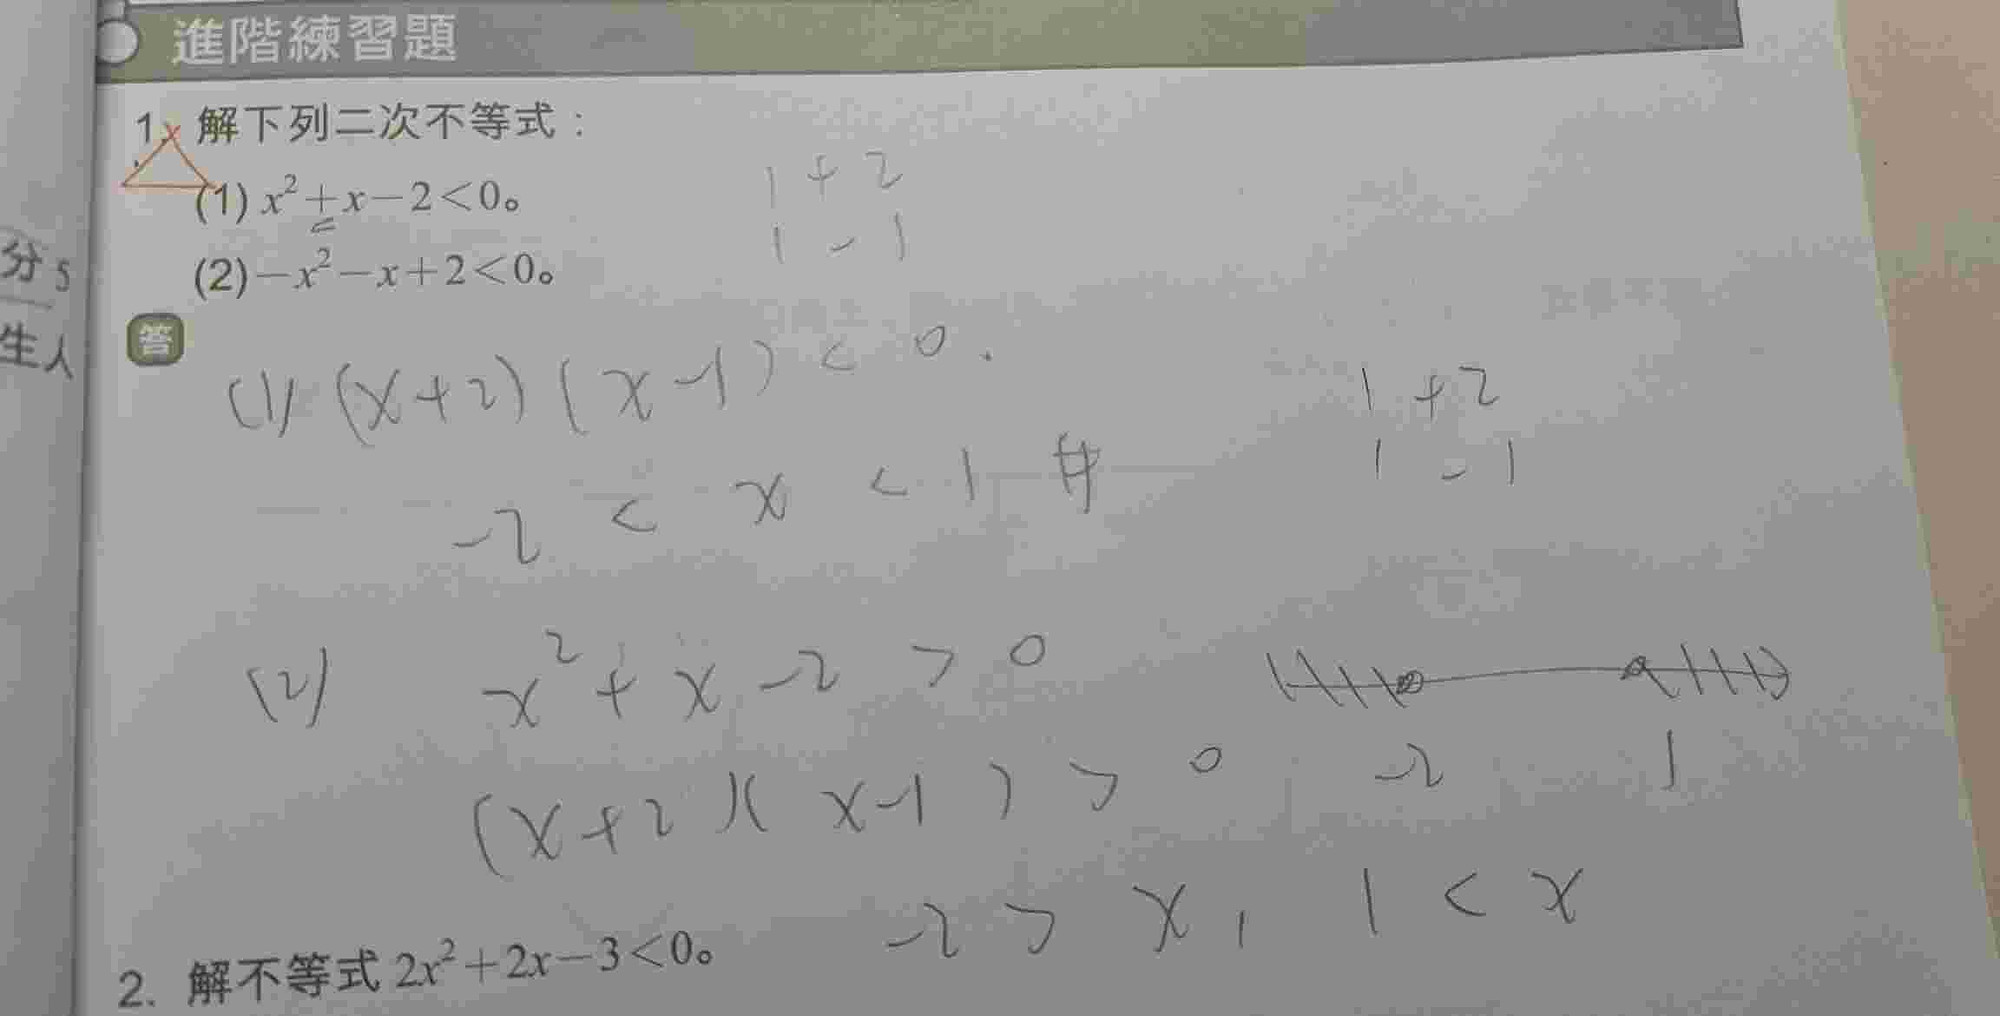 進階練習題
1. 解下列二次不等式：
(1) x²+x−2<0。
(2) −x²−x+2<0。
1 + 2
1 − 1
分 5
生人
答
(1) (x+2)(x−1) < 0.
1 + 2
1 − 1
−2 < x < 1 #
(2) x² + x − 2 > 0
(x+2)(x−1) > 0
−2 1
−2 > x, 1 < x
2. 解不等式 2x²+2x−3<0。